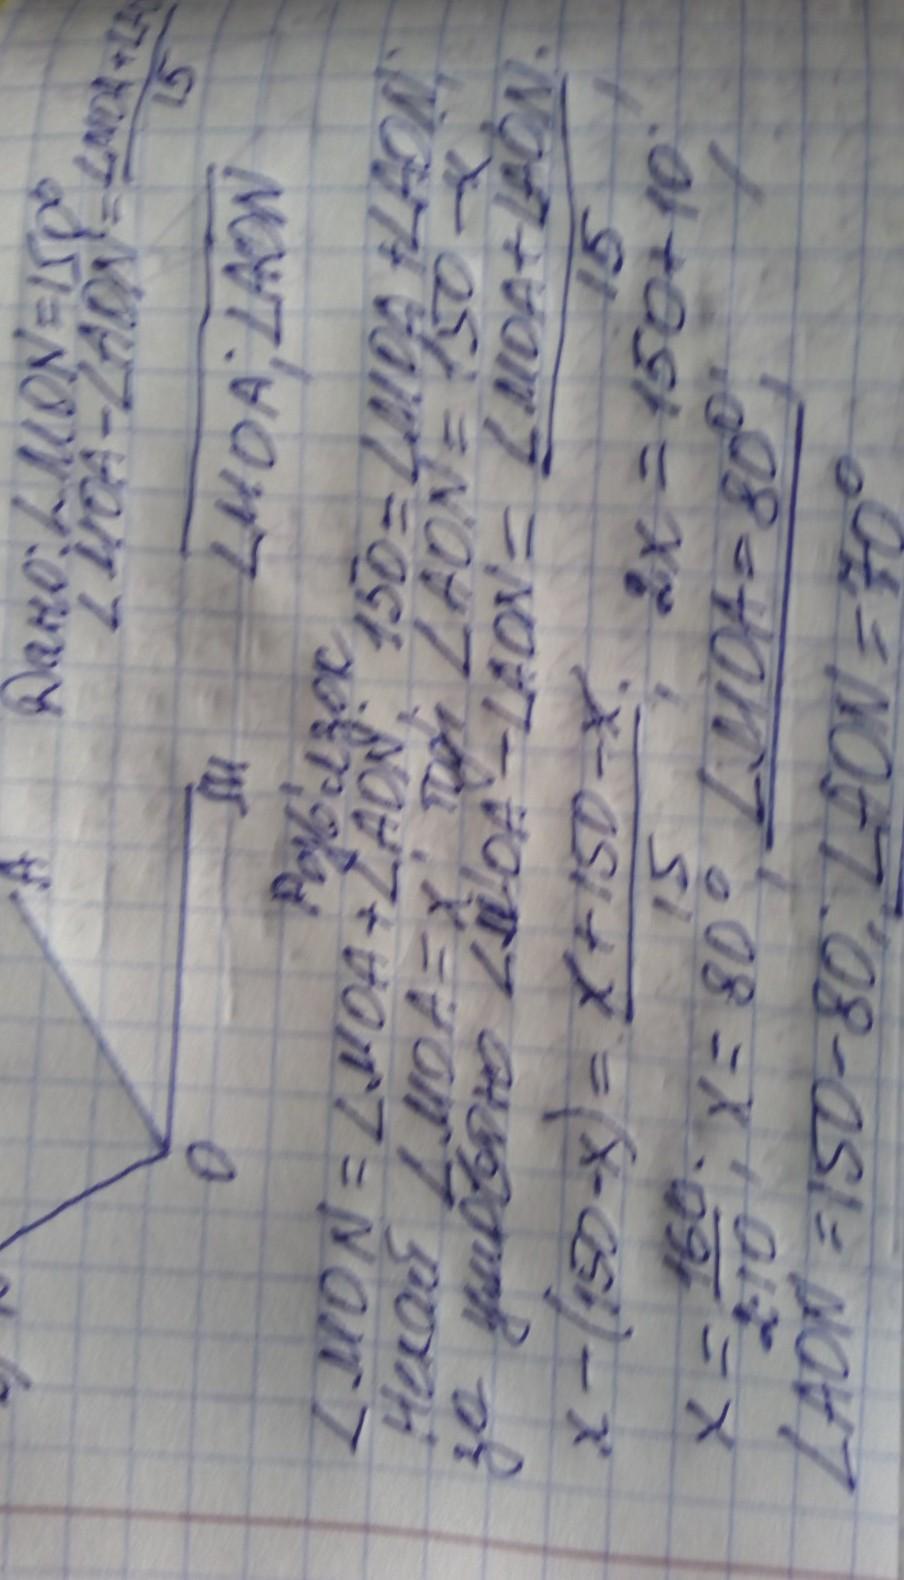 Дано: ∠MON=150°
∠MOA-∠AON=
15
∠MOA; ∠AON
A
M
O
Розв'язок
∠MON=∠MOA+∠AON; 150=∠MOA+∠AON;
Нехай ∠MOA=x, тоді ∠AON=150-x
за умовою ∠MOA-∠AON=∠MOA+∠AON.
15
x-(150-x)=x+150-x; 2x=150+10;
15
x=160; x=80°, ∠MOA=80°;
2
∠AON=150-80; ∠AON=70°